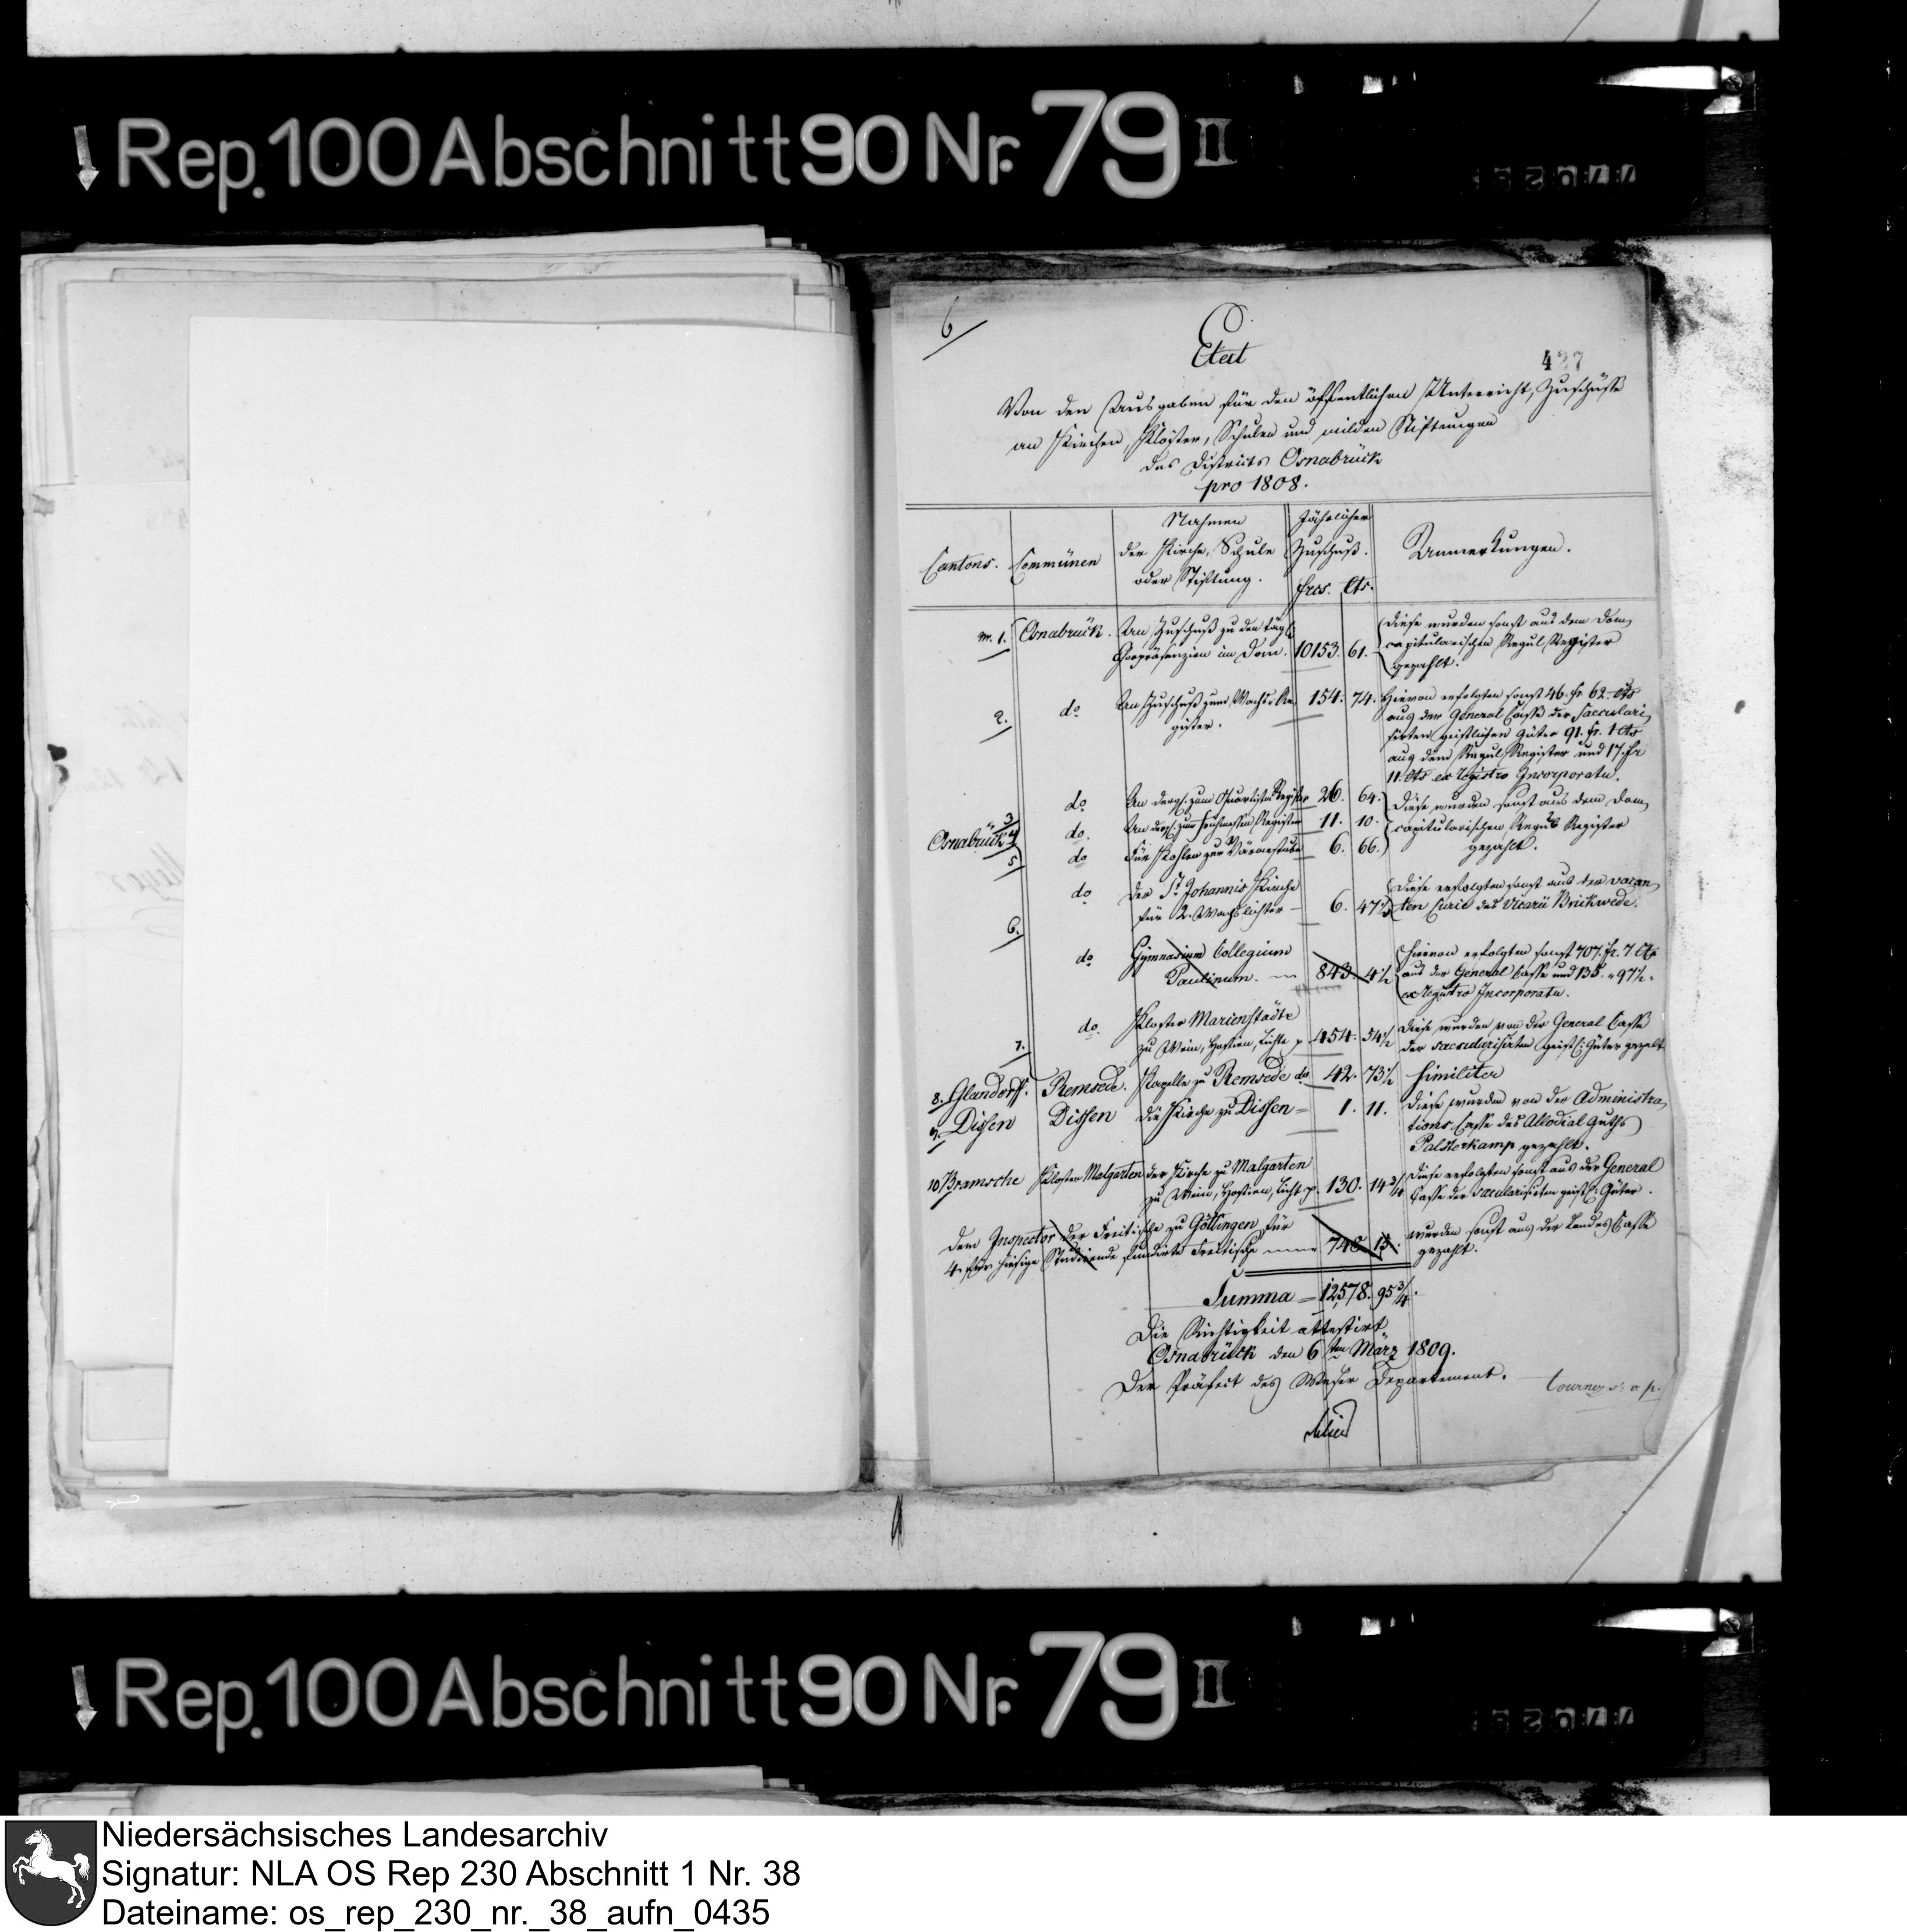 Rep. 100 Abschnitt 90 Nr. 79 II
6
427
Etat
Von den Ausgaben für den öffentlichen Unterricht, Zuschüsse
an Kirchen, Klöster, Schulen und milden Stiftungen
des Districts Osnabrück
pro 1808.
Cantons. Communen Nahmen der Kirche, Schule oder Stiftung. Jährlicher Zuschuß. frcs. Cts. Anmerkungen.
1. Osnabrück. An Zuschuß zu den tägl.
Chorpräsenzien im Dom. 10153. 61.
Diese wurden sonst aus dem Dom
capitularischen Regul Register
gezahlt.
2. do An Zuschuß zum Wachs Re
gister. 154. 74.
Hievon erfolgten sonst 46. fr. 62. Cts
aus der General Casse der Saeculari
sirten geistlichen Güter 91. fr. 1 Cts
aus dem Regul Register und 17. fr
11. Cts ex Registro Incorporatu.
Osnabrück
3 do An dergl. zum Register 26. 64.
4 do. An dergl. zum Frühmessen Register 11. 10.
5 do Für Kohlen zur Wärmestube 6. 66.
Diese wurden sonst aus dem Dom
capitularischen Regul Register
gezahlt.
6. do Der St Johannis Kirche
für 2. Wachslichter 6. 47½
Diese erfolgten sonst aus der vacan
ten Curie des Vicarii Brickwede.
do Gymnasium Collegium
Paulinum. 843. 4½
hievon erfolgten sonst 707. fr. 7 Cts
aus der General Casse und 135. " 97½.
ex Registro Incorporatu.
7. do. Kloster Marienstädte
zu Wein, Hostien, Lichte p 454. 54½
Diese wurden von der General Casse
der saecularisirten geistl: Güter gezalt
8. Glandorff. Remsede. Kapelle zu Remsede do 42. 73½ similiter
9. Dissen Dissen die Kirche zu Dissen = 1. 11.
diese wurden von der Administra
tions Casse des Allodial Guths
Palsterkamp gezahlt.
10 Bramsche Kloster Malgarten der Kirche zu Malgarten
zu Wein, Hostien, Licht p. 130. 14¾
Diese erfolgten sonst aus der General
Casse der saecularisirten geistl: Güter.
Dem Inspector der Freitische zu Göttingen für
4. für hiesige Studirende fundirte Freitische 748. 15.
wurden sonst aus der Landes Casse
gezahlt.
Summa = 12578. 95¾.
Die Richtigkeit attestirt
Osnabrück den 6ten März 1809.
Der Präfect des Weser Departement.
tournez s: v p.
Rep. 100 Abschnitt 90 Nr. 79 II
Niedersächsisches Landesarchiv
Signatur: NLA OS Rep 230 Abschnitt 1 Nr. 38
Dateiname: os_rep_230_nr._38_aufn_0435